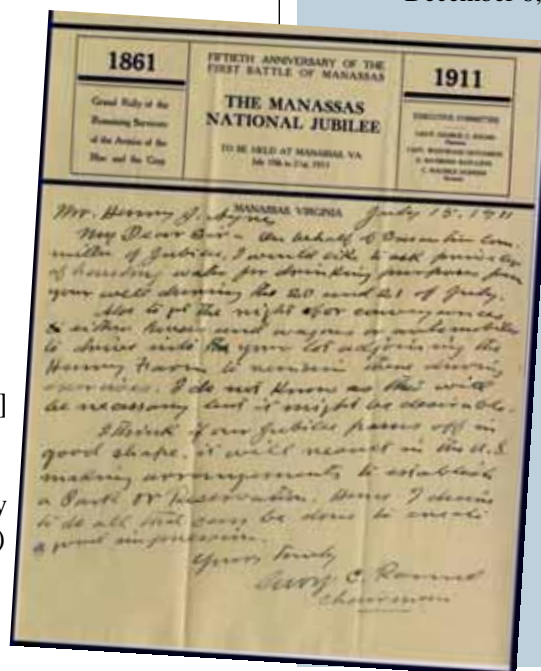 1861
Grand Rally of the
Remaining Survivors
of the Armies of the
Blue and the Gray
FIFTIETH ANNIVERSARY OF THE
FIRST BATTLE OF MANASSAS
THE MANASSAS
NATIONAL JUBILEE
TO BE HELD AT MANASSAS, VA
1911
EXECUTIVE COMMITTEE
MANASSAS VIRGINIA
Mr. Henry J. July 15. 1911
My Dear Sir - On behalf of Executive Com-
mittee of Jubilee, I would like to ask privilege
of water for drinking purposes from
your well during the 20 and 21 of July.
Also to get the right for conveyances
either horses and wagons or automobiles
to drive into your lot adjoining the
Henry Farm to remain there during
exercises. I do not know as this will
be necessary but it might be desirable.
I think if our Jubilee passes off in
good shape, it will result in the U.S.
making arrangements to establish
a Park or Reservation. Hence I desire
to do all that can be done to create
a good impression.
Yours truly
Geo. C. Round
Chairman
]
y
)